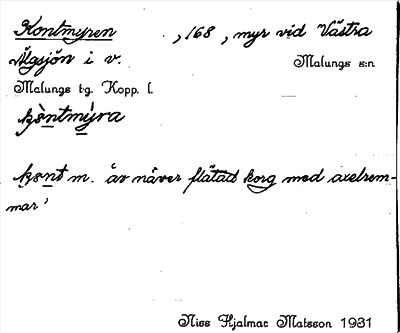 Kontmyren , 168 , myr vid Västra
Älgsjön i v. Malungs s:n
Malungs tg. Kopp. l.
myra
m. 'av näver flätad korg med axelrem-
mar'
Niss Hjalmar Matsson 1931